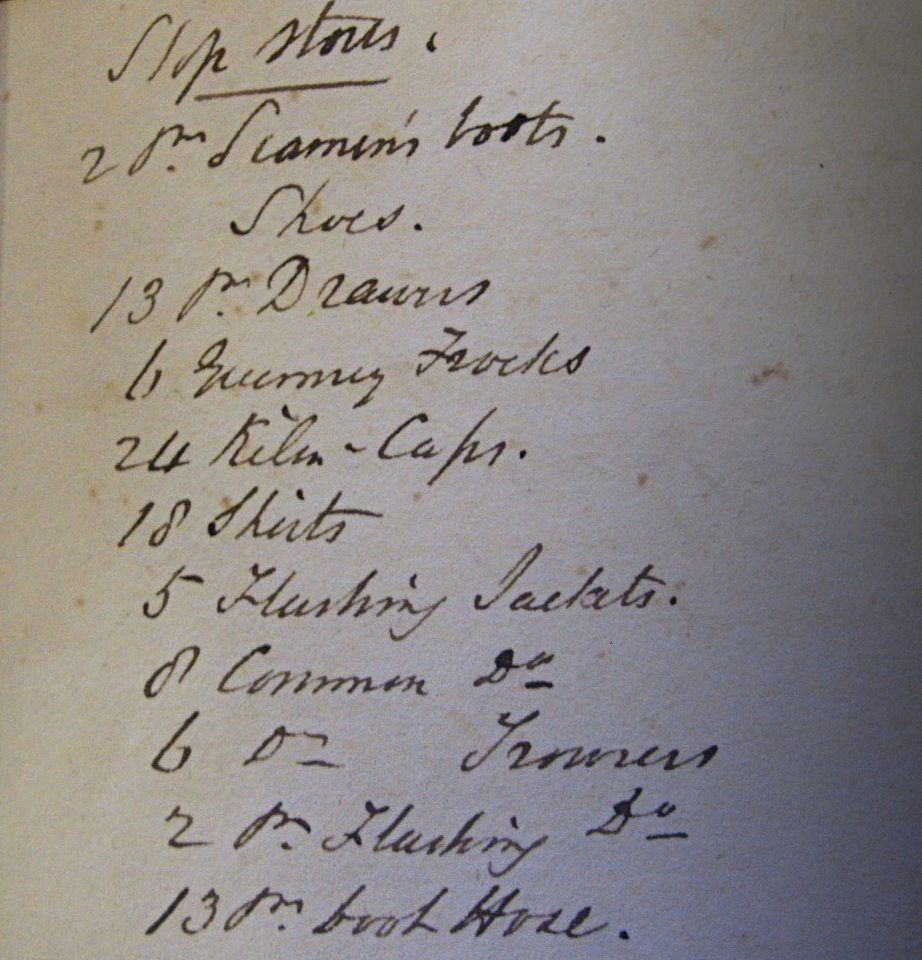 Slop Stores.
2 Prs Seamen's boots.
Shoes.
13 Pr. Drawers
6 Guernsey Frocks
24 Kiln-Caps.
18 Shirts
5 Flushing Jackets.
8 Common Do
6 Do Trowsers
2 Pr. Flushing Do
13 Pr. boot Hose.